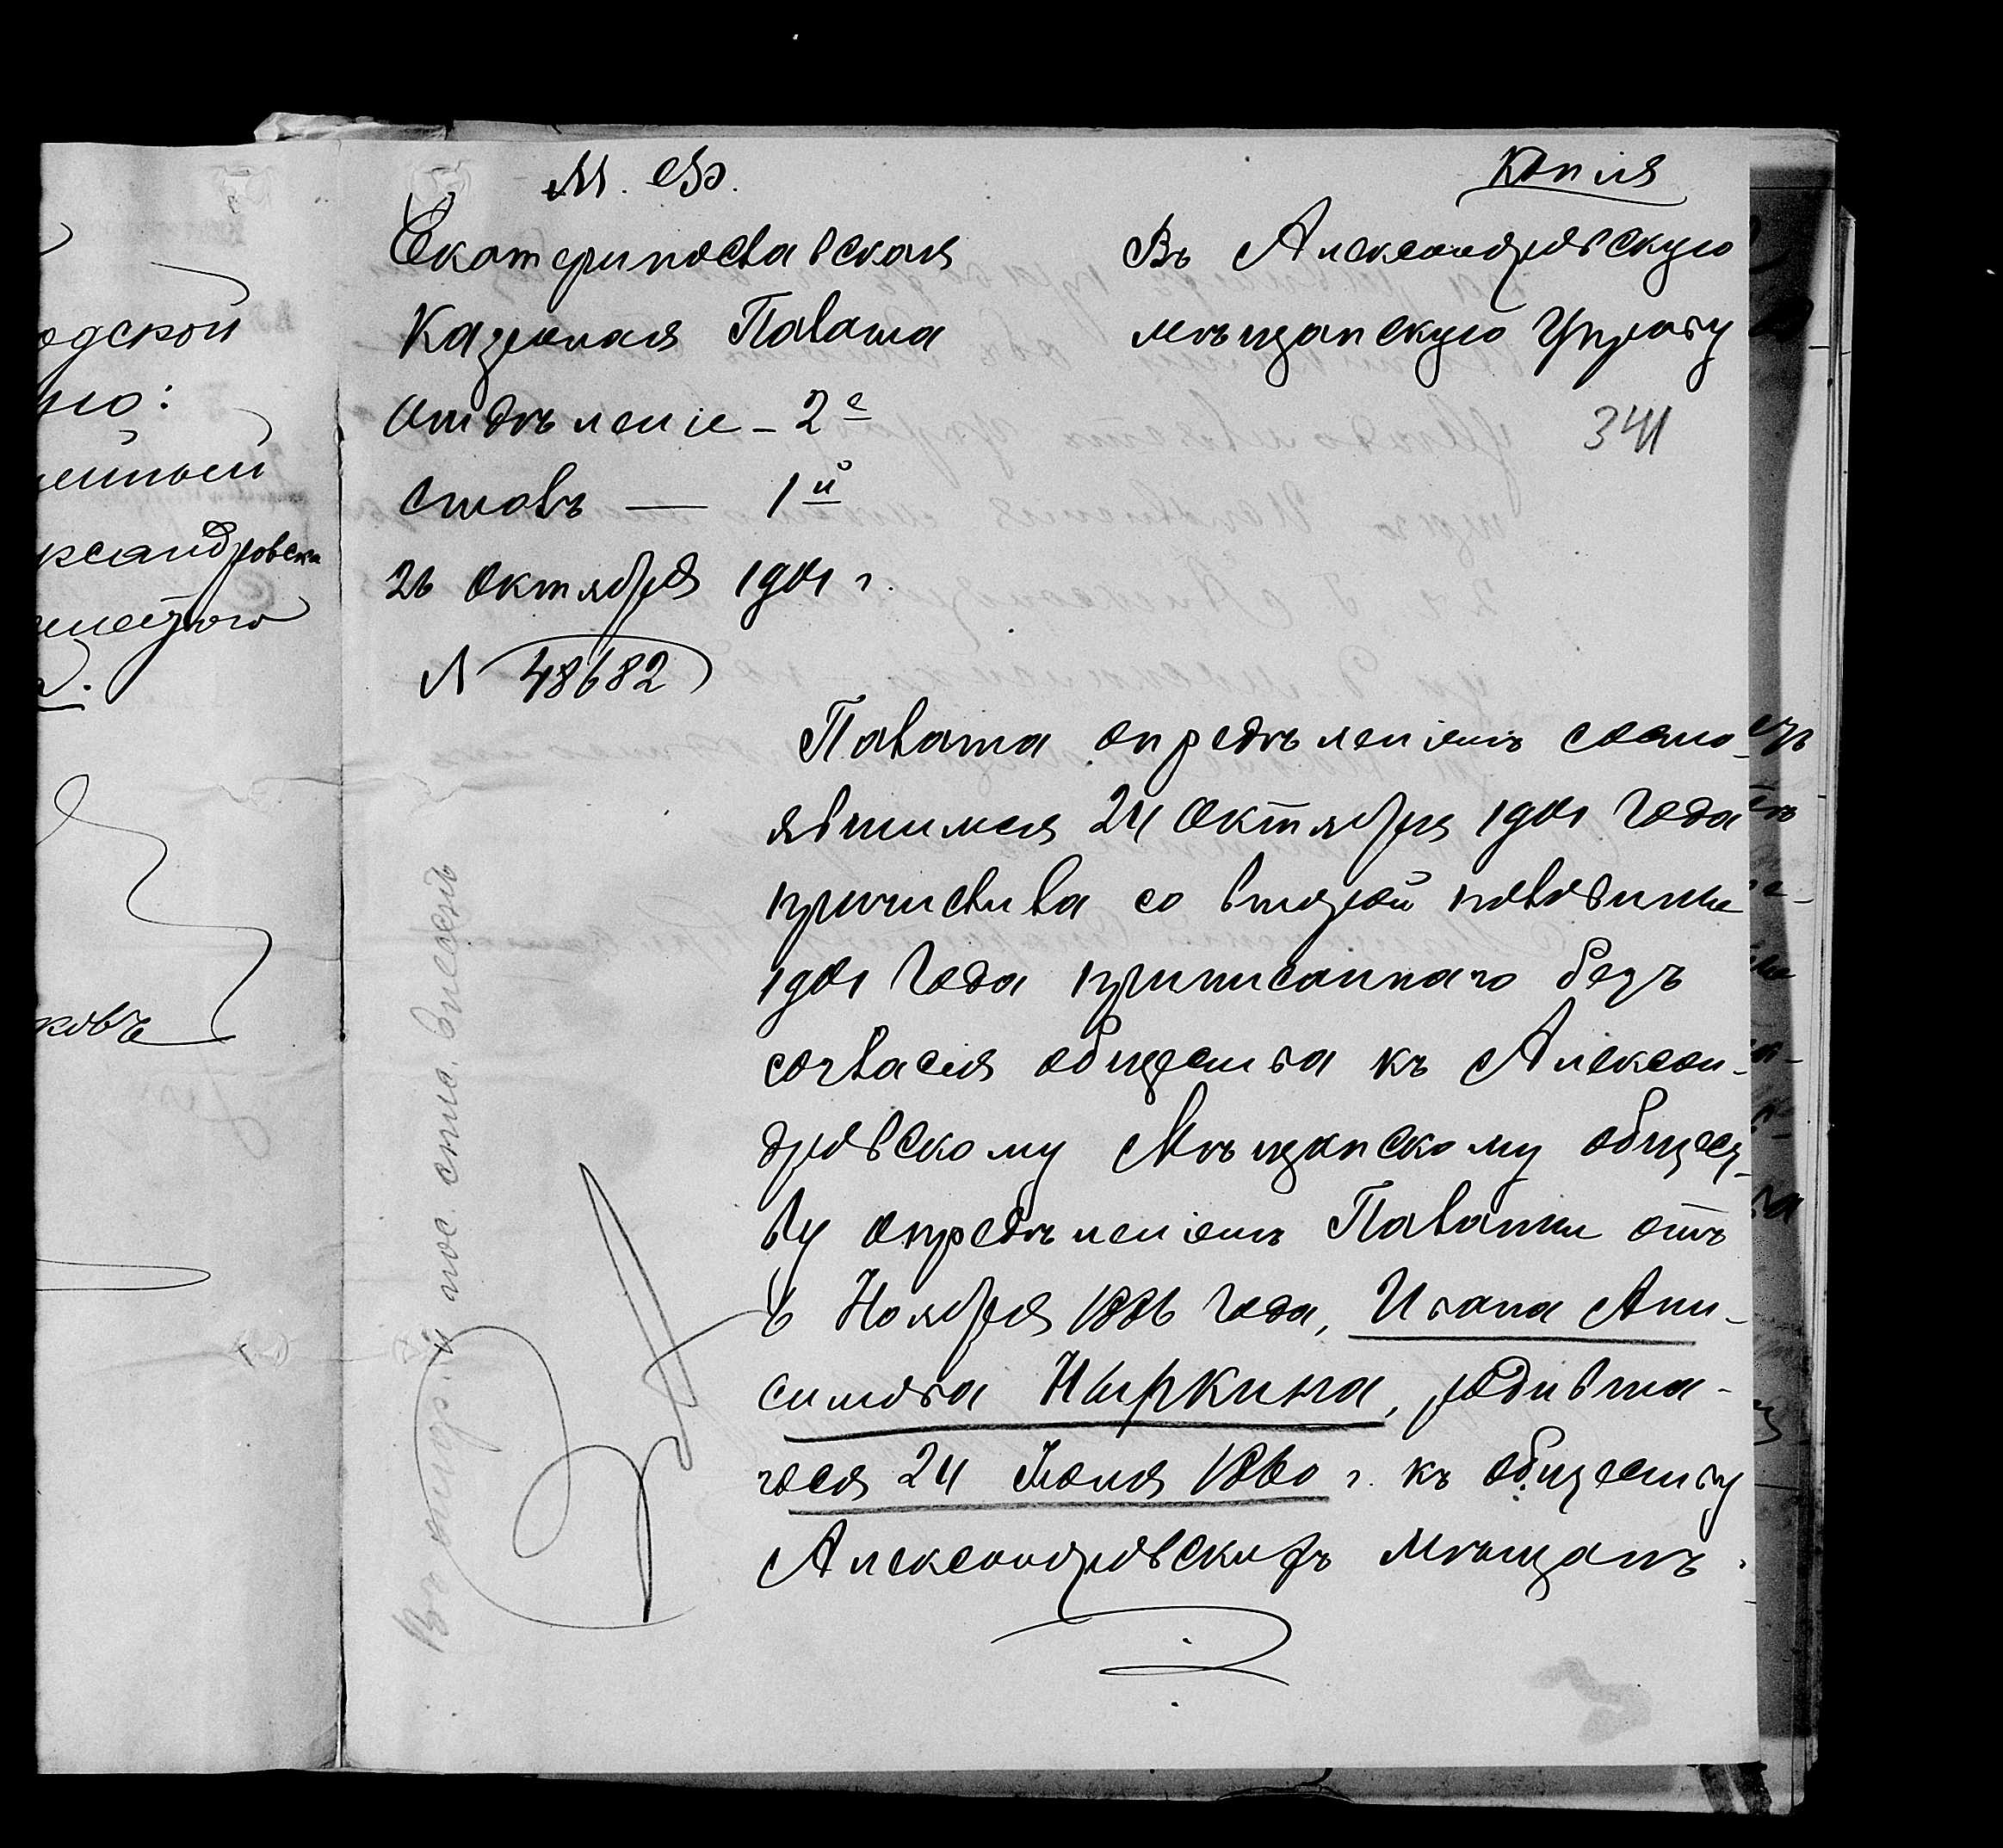 М. Ф.
Копія
Екатеринославская
Казенная Палата
Отдѣленіе – 2е
Столъ — 1й
26 Октября 1901 г.
№ 48682
Въ Александровскую
мѣщанскую Управу
341
Палата опредѣленіемъ состо-
явшимся 24 Октября 1901 года
причислила со второй половины
1901 года приписаннаго безъ
согласія общества къ Алексан-
дровскому Мѣщанскому общес-
ву опредѣленіемъ Палаты отъ
6 Ноября 1886 года, Ивана Ани-
симова Ныркина, родивша-
гося 24 Июня 1860 г. къ обществу
Александровскихъ мѣщанъ.
одской
но:
ксандровска
ковъ